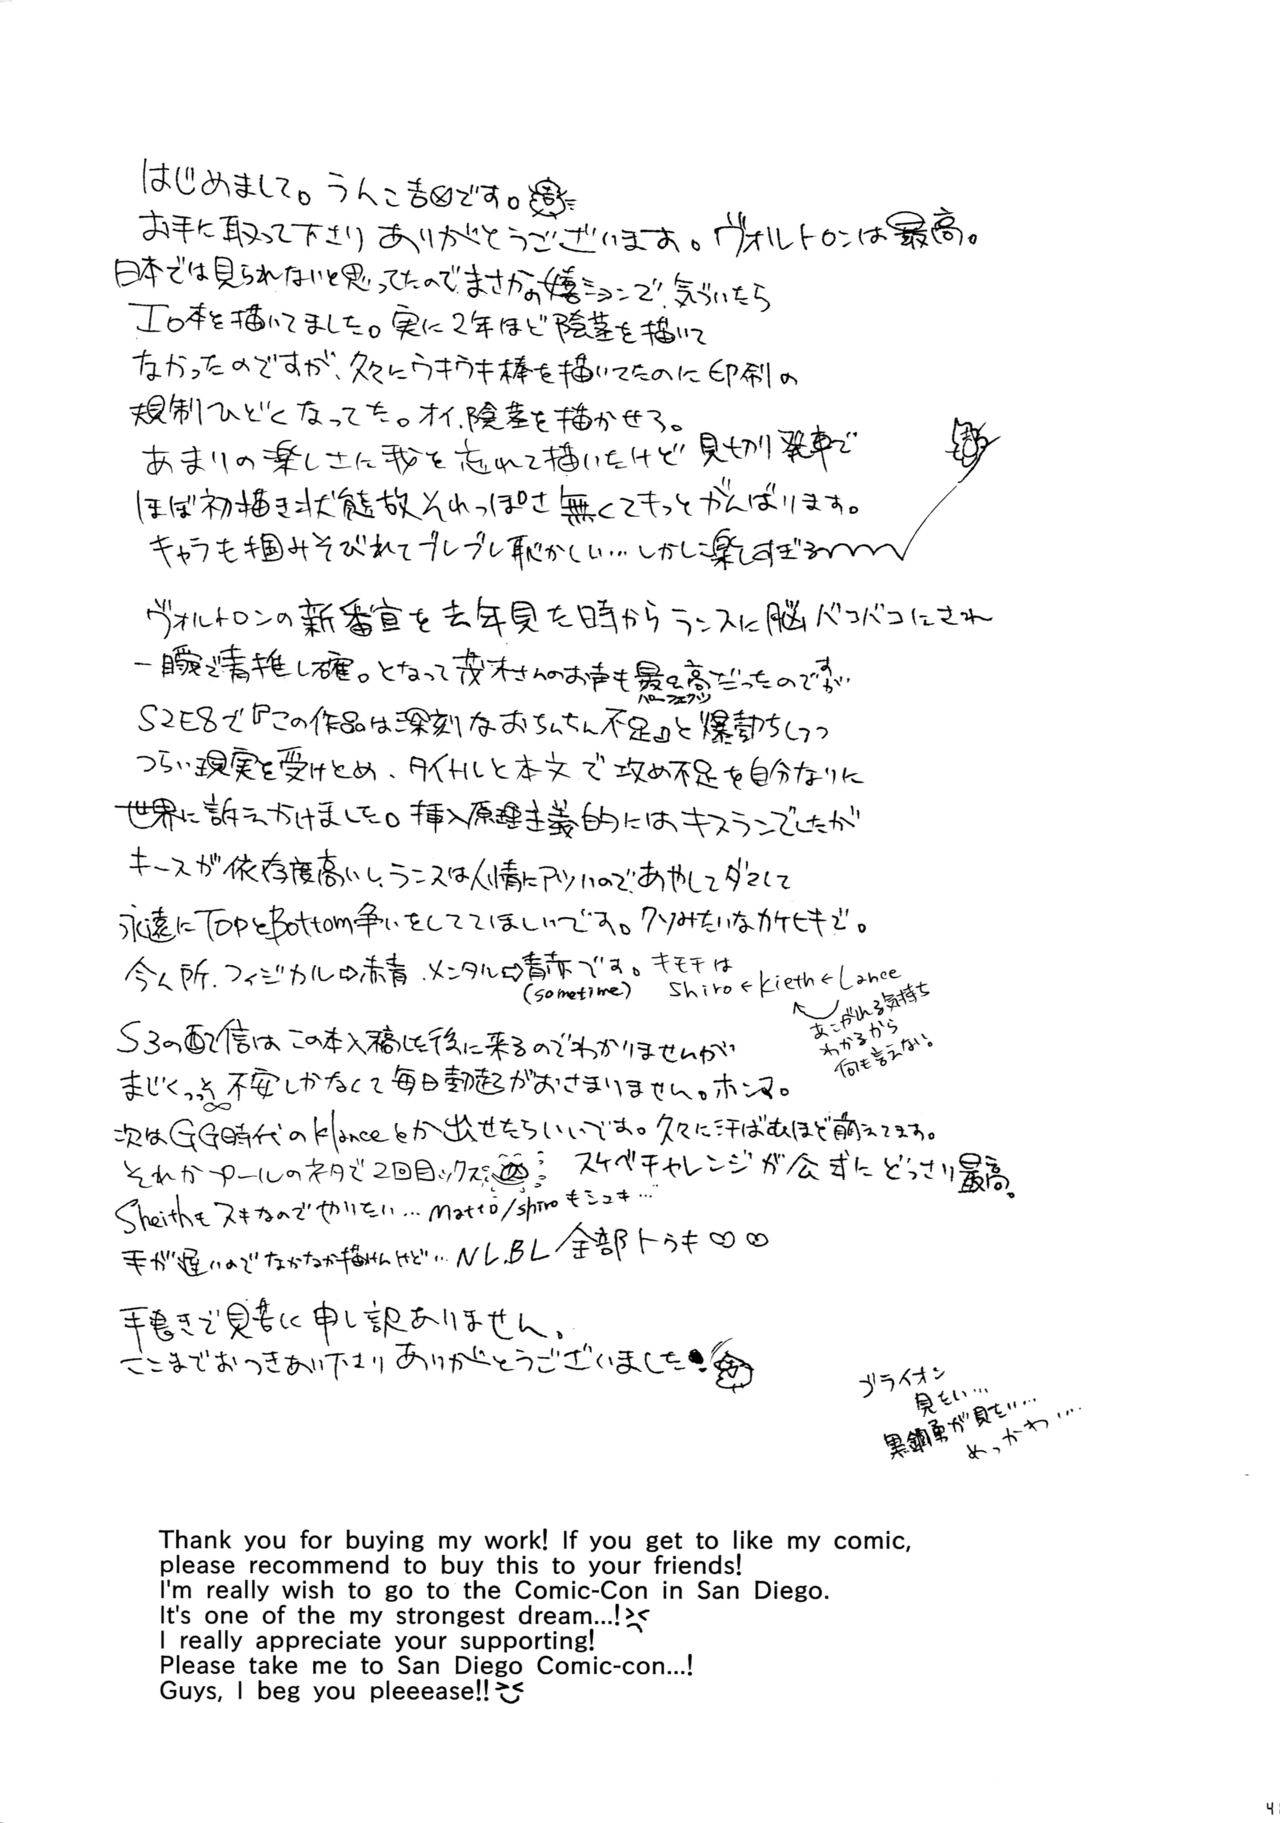 はじめまして。うんこ吉⊗です。
お手に取って下さり ありがとうございます。ヴォルトロンは最高。
日本では見られないと思ってたので、まさかの嬉ションで、気づいたら
エロ本を描いてました。実に2年ほど陰茎を描いて
なかったのですが、久々にウキウキ棒を描いてたのに印刷の
規制ひどくなってた。オイ、陰茎を描かせろ。
あまりの楽しさに我を忘れて描いたけど 見切り発車で
ほぼ初描き状態故それっぽさ無くてもっとがんばります。
キャラも掴みそびれてブレブレ恥かしい…しかし楽しすぎる
ヴォルトロンの新番宣を去年見た時からランスに脳バコバコにされ
一瞬で青推し確。となって茂木さんのお声も最&高だったのですが
パーフェクツ
S2E8で『この作品は深刻なおちんちん不足』と爆勃ちしつつ
つらい現実を受けとめ、タイトルと本文で攻め不足を自分なりに
世界に訴えかけました。挿入原理主義的にはキスランでしたが
キースが依存度高いし、ランスは人情にアツいので、あやしてダマして
永遠にTopとBottom争いをしててほしいです。クソみたいなカケヒキで。
今ん所、フィジカル⇨赤青、メンタル⇨青赤です。
(sometime)
キモチは
Shiro←Kieth←Lance
あこがれる気持ち
わかるから
何も言えない。
S3の配信はこの本入稿した後に来るのでわかりませんが
まじくっそ不安しかなくて毎日勃起がおさまりません。ホンマ。
次はGG時代のklanceとか出せたらいいです。久々に汗ばむほど萌えてます。
それかプールのネタで2回目ックス スケベチャレンジが公式にどっさり最高。
Sheithもスキなのでやりたい…Matto/shiroもシュキ…
手が遅いのでなかなか描けんけど…NL.BL全部トゥキ♡♡
手書きで見苦しく申し訳ありません。
ここまでおつきあい下さり ありがとうございました
ゴライオン
見たい…
黒鋼勇が見たい…
めっかわ…
Thank you for buying my work! If you get to like my comic,
please recommend to buy this to your friends!
I'm really wish to go to the Comic-Con in San Diego.
It's one of the my strongest dream...!
I really appreciate your supporting!
Please take me to San Diego Comic-con...!
Guys, I beg you pleeease!!